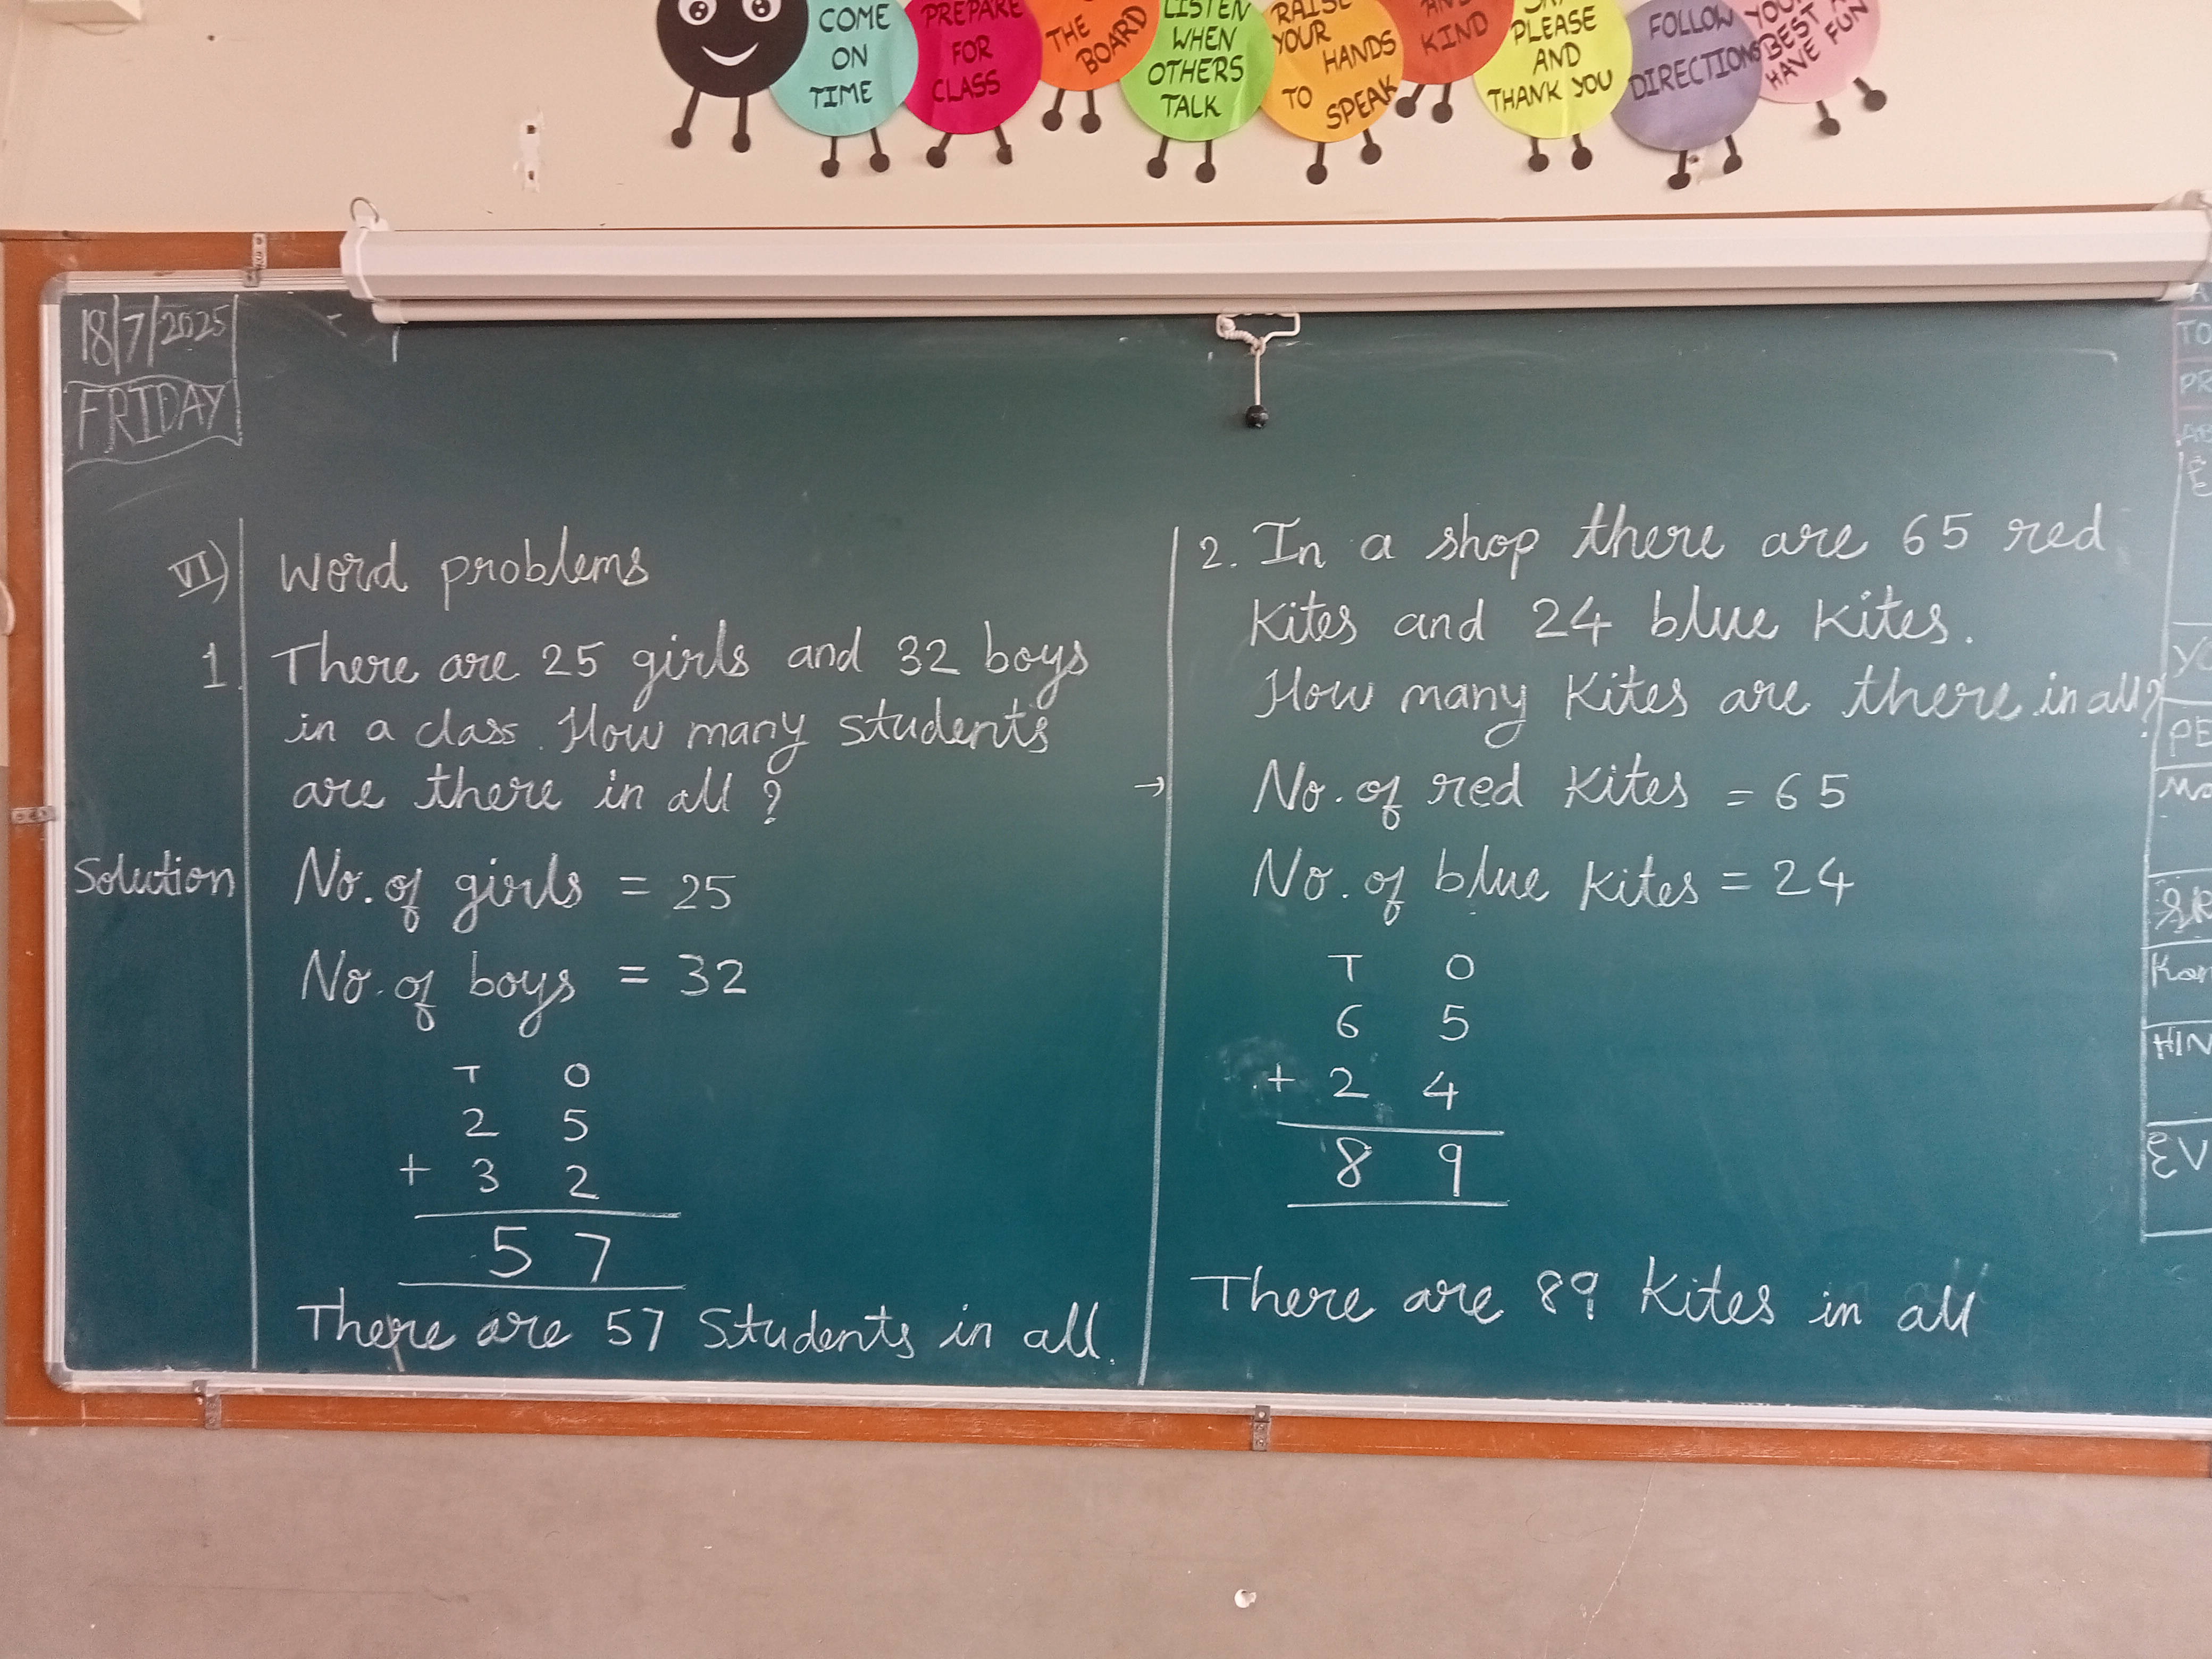 COME
ON
TIME
PREPARE
FOR
CLASS
THE
BOARD
LISTEN
WHEN
OTHERS
TALK
RAISE
YOUR
HANDS
TO
SPEAK
AND
KIND
PLEASE
AND
THANK YOU
FOLLOW
DIRECTIONS
YOUR
BEST
HAVE FUN
18/7/2025
FRIDAY
VI) Word problems
1. There are 25 girls and 32 boys
in a class. How many students
are there in all ?
Solution No. of girls = 25
No. of boys = 32
T O
2 5
+ 3 2
5 7
There are 57 Students in all.
2. In a shop there are 65 red
Kites and 24 blue Kites.
How many Kites are there in all?
→ No. of red Kites = 65
No. of blue Kites = 24
T O
6 5
+ 2 4
8 9
There are 89 Kites in all
TO
PR
E
YO
PE
Kar
HIN
EV